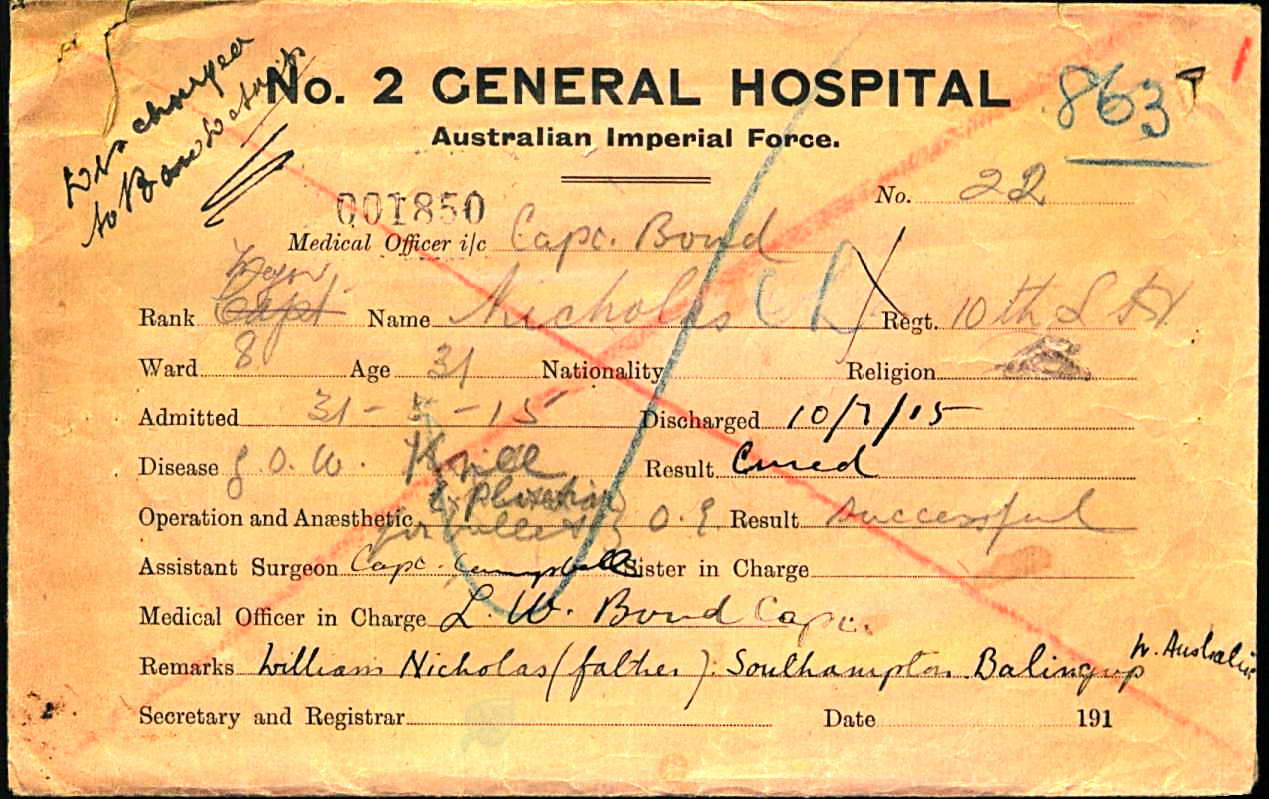 Discharged
to Base Details
No. 2 GENERAL HOSPITAL
863
Australian Imperial Force.
No. 22
001850
Medical Officer i/c Capt. Bond
Major
Rank Capt Name Nicholas Regt. 10th L H
Ward 8 Age 31 Nationality Religion
Admitted 31-5-15 Discharged 10/7/15
Disease G.S.W. Knee Result Cured
Exploration
Operation and Anæsthetic for bullet O.E. Result Successful
Assistant Surgeon Capt. Campbell Sister in Charge
Medical Officer in Charge L. W. Bond Capt.
Remarks William Nicholas (father). Southampton. Balingup W. Australia
Secretary and Registrar Date 191